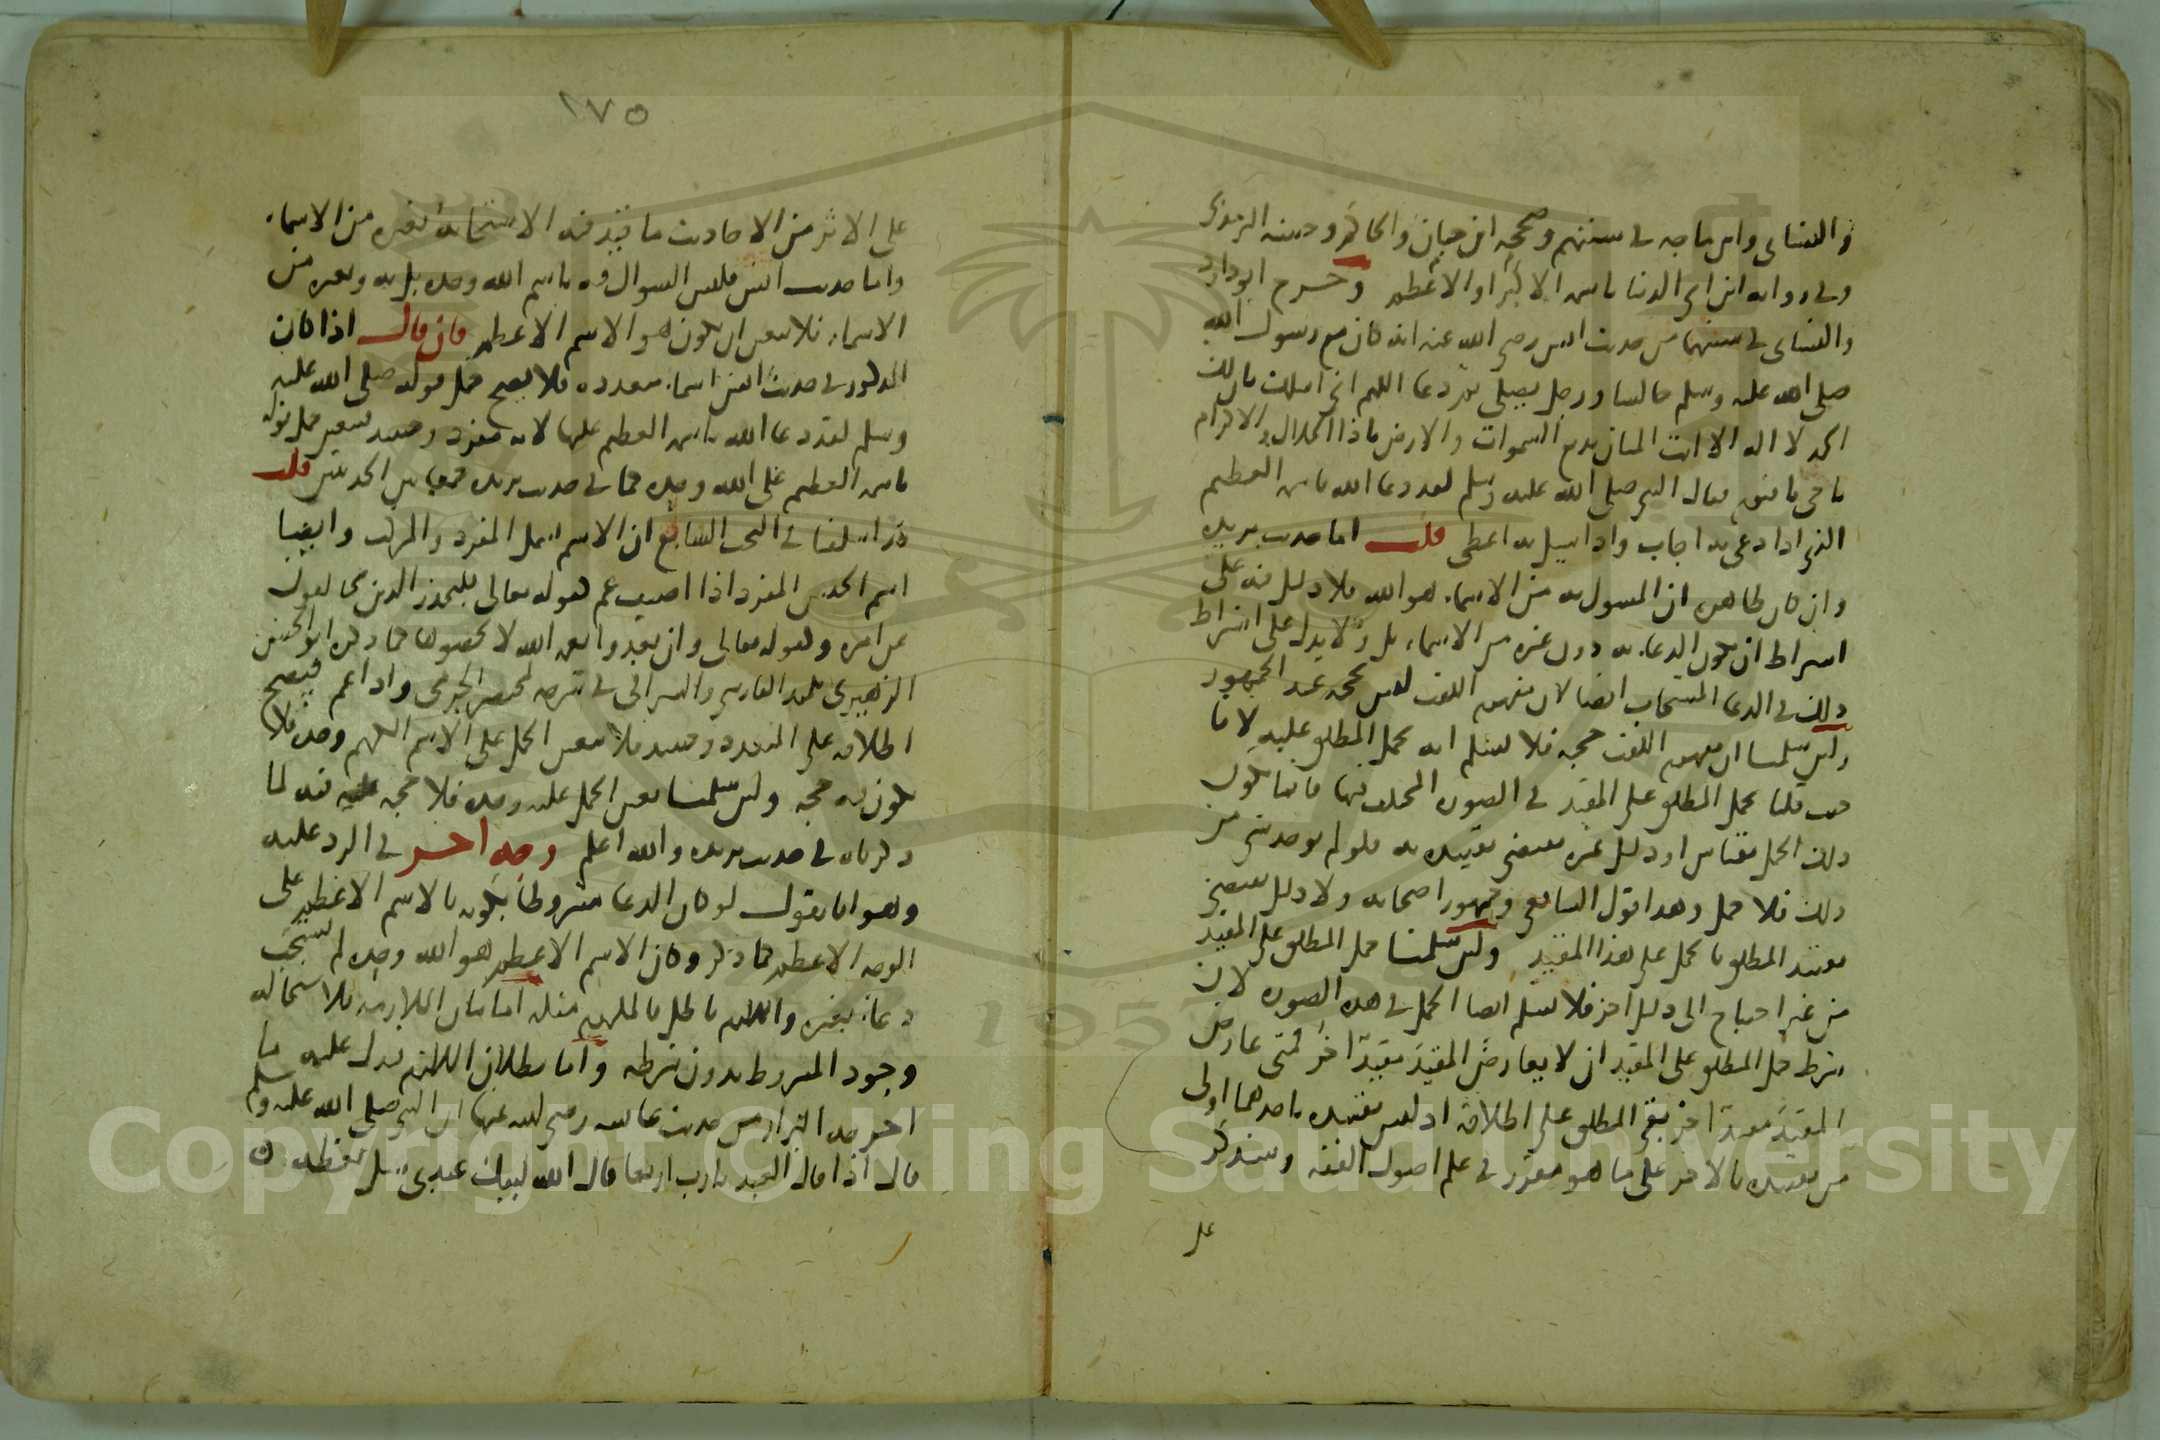 والنسائي وابن ماجه في سننهم وصححه ابن حبان والحاكم وحسنه الترمذي
وفي رواية ابن أبي الدنيا باسمه الأكبر أو الأعظم وخرج أبو داود
والنسائي في سننهما من حديث أنس رضي الله عنه أنه كان مع رسول الله
صلى الله عليه وسلم جالسا ورجل يصلي ثم دعا اللهم اني اسلك بان لك
الحمد لا اله الا انت المنان بديع السموات والارض ياذا الجلال والاكرام
يا حي يا قيوم فقال النبي صلى الله عليه وسلم لقد دعا الله باسمه العظيم
الذي اذا دعي به اجاب واذا سيل به اعطى قلت اما حديث بريدة
وان كان ظاهره ان المسول به من الاسماء هو الله فلا دليل فيه على
اشتراط ان يكون الدعاء به دون غيره من الاسماء بل ولا يدل على اشتراط
ذلك في الدعا المستجاب ايضا لان مفهوم اللقب ليس بحجة عند الجمهور
ولين سلمنا ان مفهوم اللقب حجة فلا نسلم انه يحمل المطلق عليه لانا
حيث قلنا بحمل المطلق على المقيد في الصورة المختلف فيها فانما يكون
ذلك الحمل بقياس او دليل غيره يقتضي تقييده به فلو لم يوجد شي من
ذلك فلا حمل وهذا قول الشافعي وجمهور اصحابه ولا دليل يقتضي
تقييد المطلق بالحمل على هذا المقيد ولين سلمنا حمل المطلق على المقيد
من غير احتياج الى دليل اخر فلا نسلم ايضا الحمل في هذه الصورة لان
شرط حمل المطلق على المقيد ان لا يعارض المقيد مقيدا اخر فمتى عارض
المقيد مقيدا اخر بقي المطلق على اطلاقه اذ ليس تقييده باحدهما اولى
من تقييده بالاخر على ما هو مقرر في علم اصول الفقه وسنذكر
على
٢٧٥
على الاثر من الاحاديث ما قيد فيه الاستجابة بغيره من الاسماء
واما حديث انس فليس السوال فيه باسم الله وحده بل به وبغيره من
الاسماء فلا يتعين ان يكون هو الاسم الاعظم فان قال اذا كان
المذكور في حديث انس اسماء متعددة فلا يصح حمل قوله صلى الله عليه
وسلم لقد دعا الله باسمه العظيم عليها لانه مفرد وحينيذ يتعين حمل قوله
باسمه العظيم على الله وحده كما في حديث بريدة جمعا بين الحديثين قلت
قد اسلفنا في البحث السابع ان الاسم يشمل المفرد والمركب وايضا
اسم الجنس المفرد اذا اضيف عم كقوله تعالى فليحذر الذين يخالفون
عن امره وكقوله تعالى وان تعدوا نعمة الله لا تحصوها كما ذكره ابو الحسن
تلميذ الفارسي والسيرافي في شرحه لمختصر الجرمي واذا عم فيصح
اطلاقه على المتعدد وحينيذ فلا يتعين الحمل على الاسم الكريم وحده فلا
يكون فيه حجة ولين سلمنا تعين الحمل عليه وحده فلا حجة فيه لما
ذكرناه في حديث بريدة والله اعلم وجه اخر في الرد عليه
وهو انا نقول لو كان الدعا مشروطا بكونه بالاسم الاعظم على
الوجه الاعظم كما ذكر وكان الاسم الاعظم هو الله وحده لم يستجب
دعاء بغيره واللازم باطل فالملزوم مثله اما بيان الملازمة فلاستحالة
وجود المشروط بدون شرطه واما بطلان اللازم فيدل عليه ما
اخرجه البزار من حديث عايشة رضي الله عنها ان النبي صلى الله عليه وسلم
قال اذا قال العبد يارب اربعا قال الله لبيك عبدي سل تعطه
Copyright © King Saud University
1957